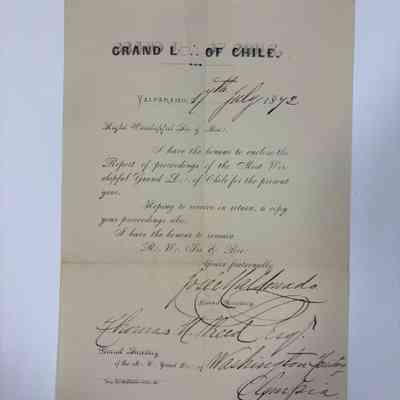 GRAND L∴ OF CHILE.
VALPARAISO, 17th July 1872
Right Worshipful Sir & Bro:
I have the honour to enclose the
Report of proceedings of the Most Wor
shipful Grand L∴ of Chile for the present
year.
Hoping to receive in return, a copy
your proceedings also.
I have the honour to remain
R. W. Sir & Bro:
Yours fraternally
José Maldonado
Grand Secretary
Thomas M. Reed Esqr.
Grand Secretary
of the M. W. Grand L∴ of Washington Territory
Olympia